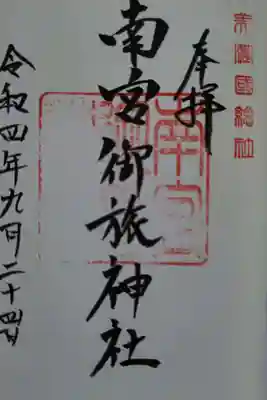 美濃國總社
奉拝
南宮御旅神社
令和四年九月二十四日